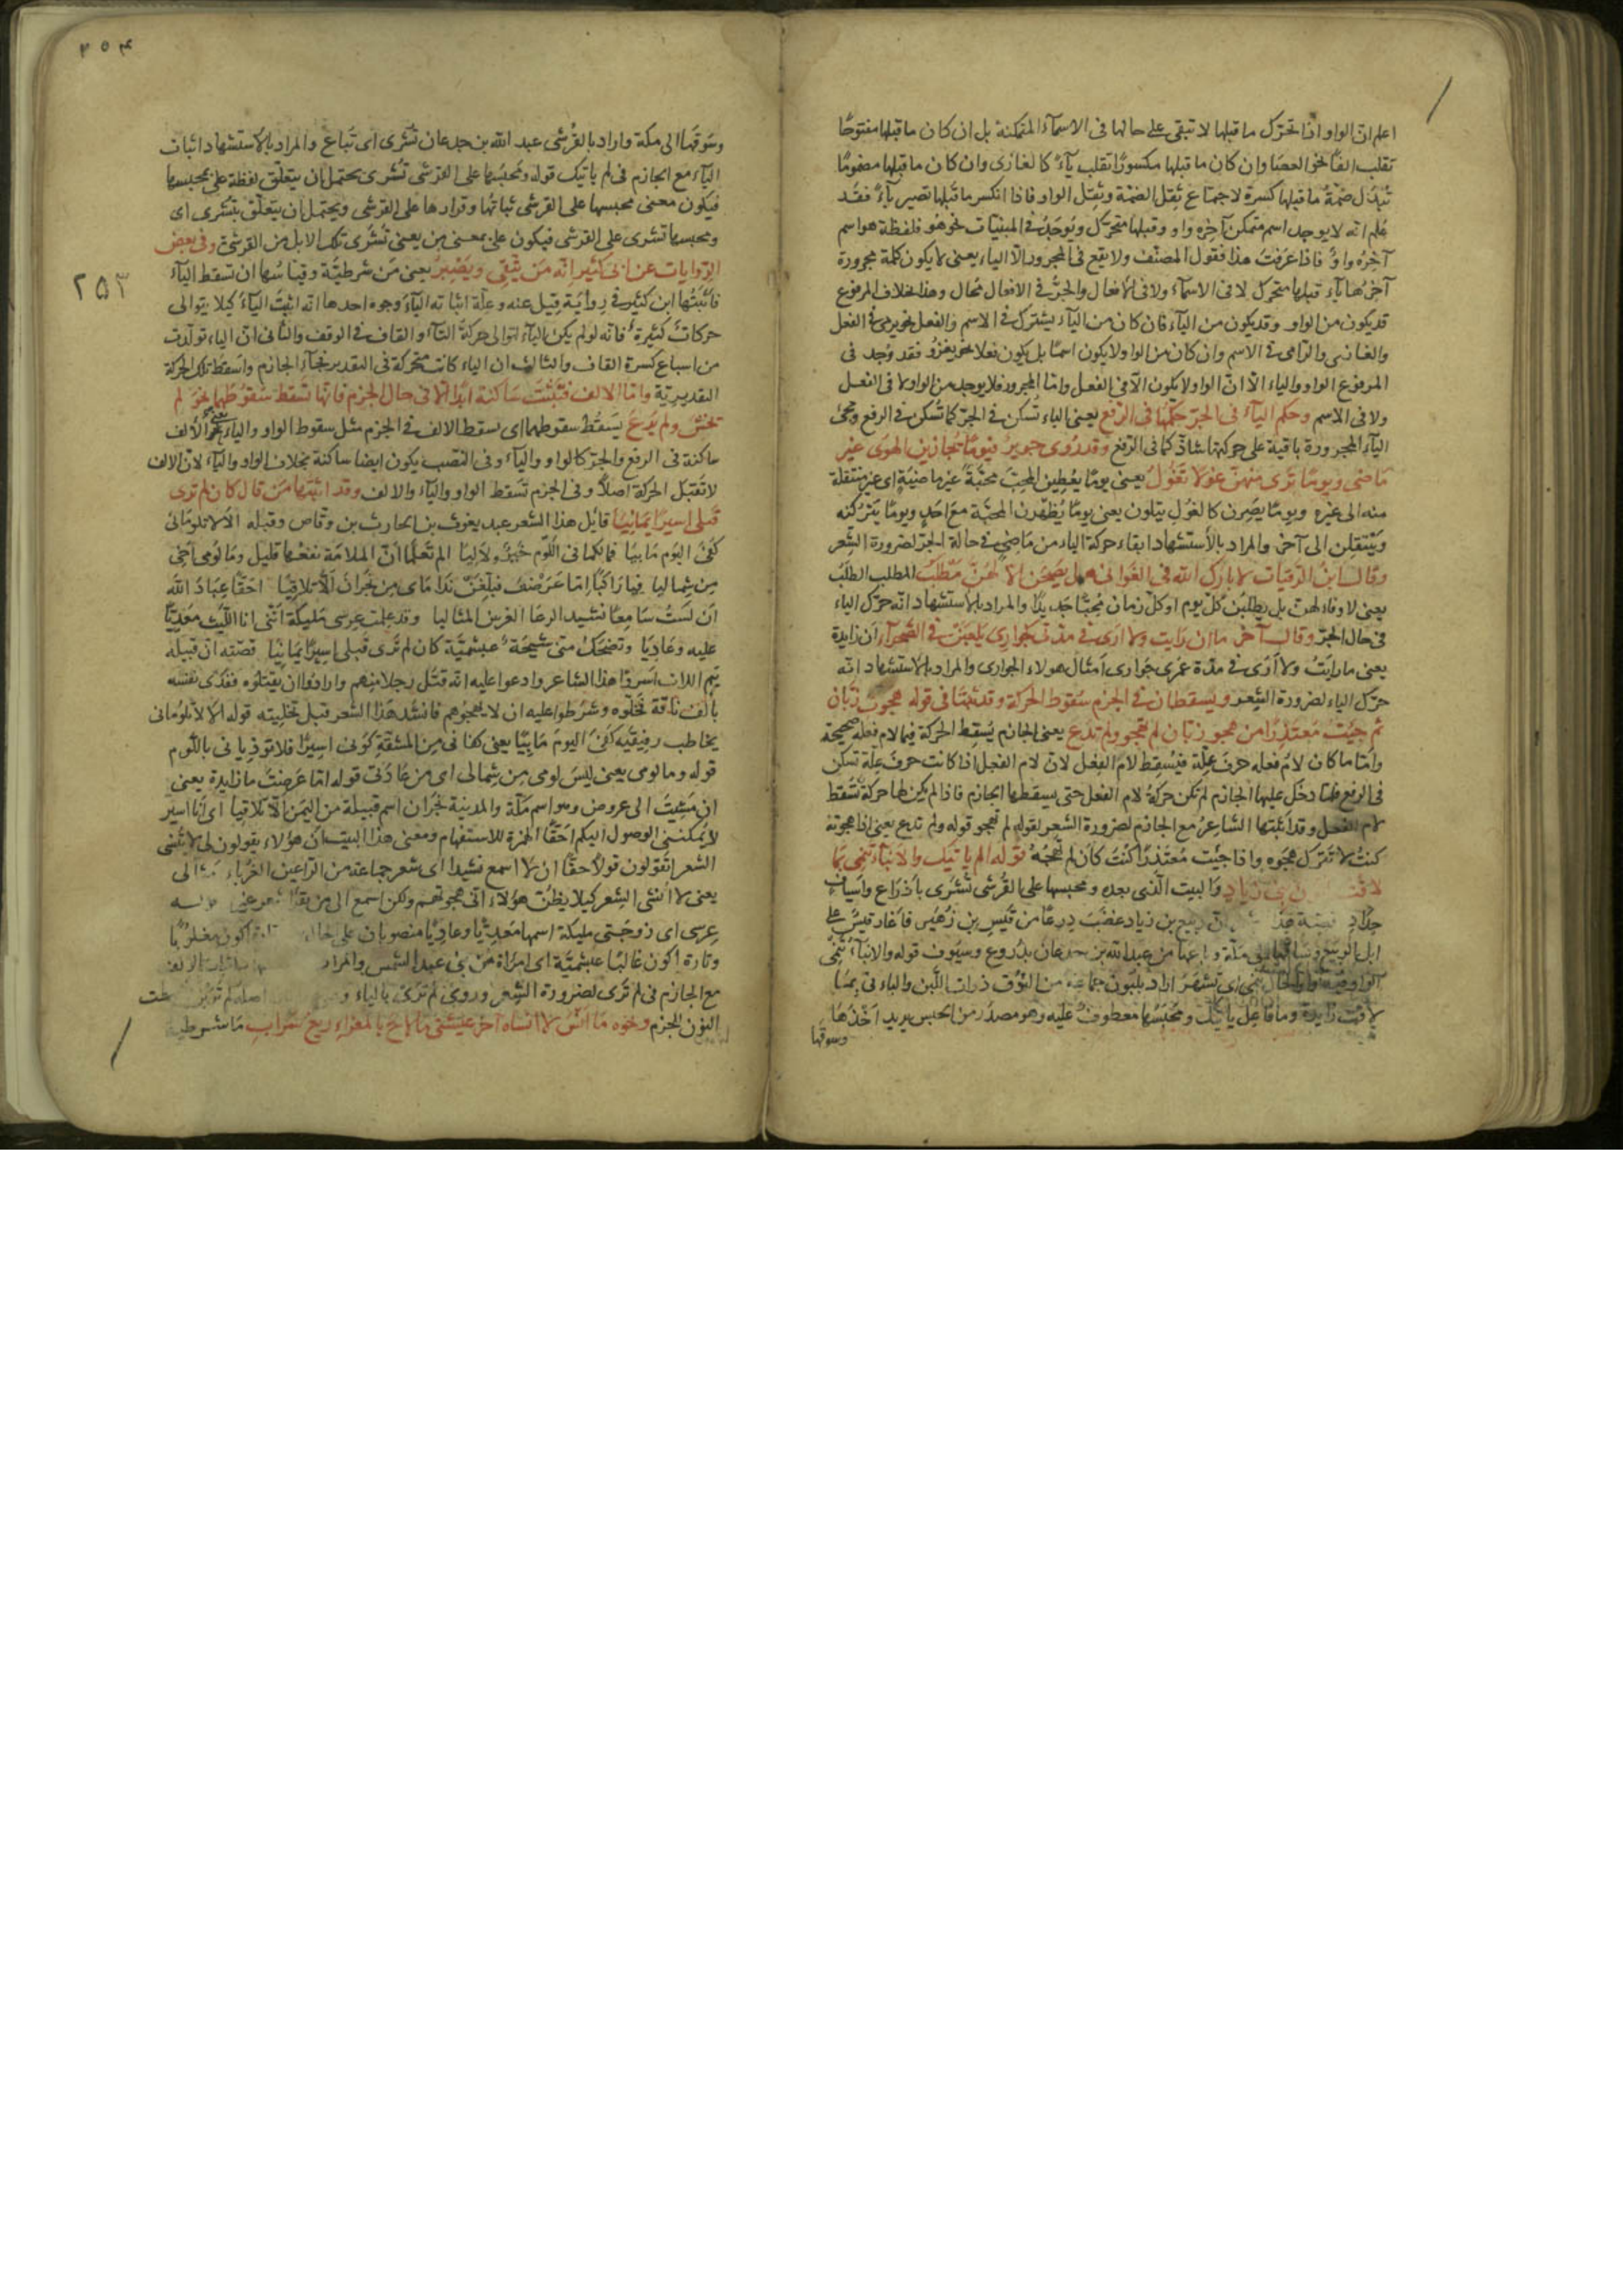 اعلم ان الواو اذا تحرّك ما قبلها لا تبقى على حالها فى الاسماء المتمكنة بل ان كان ما قبلها مفتوحًا
تقلب الفًا نحو العصَا وان كان ما قبلها مكسورًا تقلب ياءً كالغازى وان كان ما قبلها مضمومًا
تبدّل ضمّة ما قبلها كسرة لاجتماع ثِقل الضمّة وثِقل الواو فاذا انكسر ما قبلها تصير ياءً فقد
عُلم انه لا يوجد اسم متمكن آخره واو وقبلها متحرّك ويُوجَدُ فى المبنيات نحو هُو فلفظة هو اسم
آخرهُ واوٌ فاذا عرَفتَ هذا فقول المصنّف ولا يقع فى المجرور الّا الياء يعنى لا يكون كلمة مجرورة
آخرُها ياء قبلها متحرّك لا فى الاسماء ولا فى الافعال والجرُّ فى الافعال مُحال وهذا بخلاف المرفوع
قد يكون من الواو وقد يكون من الياء فان كان من الياء يشترك فى الاسم والفعل نحو يرمى فى الفعل
والغازى والرامى فى الاسم وان كان من الواو لا يكون اسمًا بل يكون فعلا نحو يغزُو فقد وُجد فى
المرفوع الواو والياء الّا انّ الواو لا يكون الّا فى الفعل وامّا المجرور فلا يوجد من الواو لا فى الفعل
ولا فى الاسم وحكم الياء فى الجرّ حكمُها فى الرفع يعنى الياء تُسكن فى الجرّ كما تُسكن فى الرفع ومجئ
الياء المجرورة باقية على حركتها شاذّ كما فى الرفع وقد رُوى جرير فيومًا يجازين الهوى غير
مَاضى ويومًا ترى منهنّ غولا تَغَوَّلُ يعنى يومًا يعُطِين المحِبَّ محبّةً غير ماضيةٍ اى غير منتقلة
منه الى غيره ويومًا يصِرن كالغُول يتلون يعنى يومًا يُظهرن المحبّة مع احَدٍ ويومًا يَتركنه
ويَنتقلن الى آخر والمراد بالاستشهاد ابقاء حركة الياء من مَاضِى فى حالة الجرّ لضرورة الشعر
وقال ابنُ الرّقيات لا بارك الله فى الغوانى هل يصبحن الّا لهنّ مُطّلَبُ المطلب الطلَبُ
يعنى لا وفاء لهنّ بل يطلبن كلّ يوم او كلّ زمان مُحِبًّا جَديدًا والمراد بالاستشهاد انّه حرّك الياء
فى حال الجرّ وقال آخر ما ان رايت ولا ارى فى مدّتى كجوارِى يلعَبْنَ فى الصّحراء ان زايدة
يعنى ما رايتُ ولا اَرَى فى مدّة عمرى جَوارى اَمثال هولاء الجوارى والمراد بالاستشهاد انّه
حرّك الياء لضرورة الشّعر ويسقطان فى الجزم سُقوط الحركة وقد ثبتتا فى قوله هجوتَ زبّان
ثم جِئتَ مُعتذِرًا من هجو زبّان لم تهجو ولم تدَع يعنى الجازم يُسقط الحركة فيما لام فعله صحيحة
وامّا ما كان لامُ فعله حرفَ علّة فيُسقِط لامَ الفِعل لانّ لام الفعل اذا كانت حرفَ علّة تسكن
فى الرفع فلمّا دخل عليها الجازم لم تكن حركةُ لام الفعل حتى يسقطها الجازم فاذا لم يكن لها حركة تسقط
لام الفعل وقد اثبتها الشاعر مع الجازم لضرورة الشعر لقوله لم تهجو قوله ولم تدع يعنى اذا هجوته
كنتُ لا تترك هجوه واذا جئت معتذرًا كنتَ كأن لم تهجُهُ قوله الم ياتيك والانباء تنمى بما
لاقت بنى زياد والبيت الّذى بعده ومحبسها على القُرشى تُشرَى بادْرَاع واَسياف
حِدَادِ قصة هذا ربيع بن زياد غضبَ درعًا من قيس بن زُهَير فاغار قيسٌ على
ابل الربيع وساقها الى مكّة وباعها من عبد الله بن جدعان بدُروع وسيُوف قوله والانباء تنمى
الواو فيه واو الحال تنمى اى تشهَرُ اراد بلبون جماعة من النوُق ذوات اللّبن والباء فى بمَا
لاقت زايدة وما فاعِلُ ياتيك ومَحبِسُها معطوفٌ عليه وهو مصدر من الحبس يريد اَخذهَا
وسوقها
٢٥٤
وسَوقَها الى مكة واراد بالقُرشى عبد الله بن جدعان تُشرى اى تُباع والمراد بالاستشهاد اثبات
الياء مع الجازم فى لم ياتيك قوله ومَحبسُها على القرشى تُشرى يحتمل ان يتعلّق لفظة على بمحبسها
فيكون معنى محبسها على القرشى ثباتُها وقرارها على القرشى ويحتمل ان يتعلّق بتُشرى اى
ومحبسها تُشرى على القرشى فيكون على بمعنى مِن يعنى تُشرى تلك الابل من القرشى وفى بعض
الروايات عن ابن كثير انّه مَن يَتّقى ويَصْبِرْ يعنى مَن شرطيّة وقياسُها ان تسقط الياء
٢٥٣
فاثبتُها ابن كثير فى رواية قيل عنه وعلّة اثباته الياءَ وجوه احدها انّه اثبتَ الياءَ كيلا يتوالى
حركاتٌ كثيرةٌ فانّه لو لم يكن الياء لتوالى حركة التاء والقاف فى الوقف والثانى انّ الياء تولّدت
من اشباع كسرة القاف والثالث ان الياء كانت متحركة فى التقدير فجاء الجازم واسقط تلك الحركة
التقديرية وامّا الالف فتثبت سَاكنة ابدًا الّا فى حال الجزم فانّها تَسقط سُقوطهما نحو لم
تخشَ ولم يَدَع يَسقُط سقوطهما اى يسقط الالف فى الجزم مثل سقوط الواو والياء يعنى الالف
ساكنة فى الرفع والجرّ كالواو والياء وفى النصب يكون ايضا ساكنة بخلاف الواو والياء لان الالف
لا تَقبَل الحركة اصلًا وفى الجزم تَسقط الواو والياء والالف وقد اثبتها مَن قال كان لم ترى
قبلى اسيرًا يمَانِيًا قائل هذا الشعر عبد يغوث بن الحارث بن وقّاص وقبله الا لا تلومانى
كفى اليَوم مَا بيَا فما لكما فى اللّوم خيرٌ ولا لِيَا الم تَعلما انّ الملامَة نفعُها قليل وما لومى اخى
مِن شِماليا فيا راكبًا امّا عَرَضتَ فبلّغنْ نَدَامَاى مِن نَجرانَ اَلّا تلاقيَا احَقًّا عِبادَ الله
اَن لستُ سَامِعًا نشيد الرعَا المثاليا وقد علمت عِرسى مُليكة انّنى انا اللّيث مَعدِيًّا
عليه وعَاديَا وتضحَكُ منّى شيخةٌ عبشميّة كان لم ترى قبلى اسيرًا يمَانيًا قصّته ان قبيلة
تيم اللات اَسروا هذا الشاعر وادعوا عليه انّه قتَل رجلا منهم وارادوا ان يقتلوه ففدَى نفسَه
بالف ناقة فخَلّوه وشرَطوا عليه ان لا يهجوهم فانشد هَذا الشعر قبل تخليته قوله الا لا تلومانى
يخاطب رفيقيه كفى اليومَ مَا بِيَا يعنى كفانى مِن المشقّة كونى اسيرًا فلا توذيانى باللّوم
قوله وما لومى يعنى ليسَ لومى مِن شِمالى اى من عَادتى قوله امّا عَرضتَ ما زايدة يعنى
ان مَشيتَ الى عروض وهو اسم مكّة والمدينة نجران اسم قبيلة من اليمن الّا تلاقيا اى انا اسير
لا يُمكننى الوصول اليكم اَحَقًّا الهمزة للاستفهام ومعنى هذا البيت ان هؤلاء يقولون لى لا تُنشى
الشعر اتقولون قولًا حقًّا ان لا اسمع نشيدا اى شعر جماعة من الراعين الغُرَباء
يعنى لا اُنشى الشِعر كيلا يظُنّ هؤلاء انّى هجوتهم ولكن اسمع الى مَن يقرأ
عِرسى اى زوجَتى مليكة اسمها مَعدِيًّا وعاديًا منصوبان على الحال اكون مغلوبًا
وتارة اكون غالبًا عبشميّة اى امرَاة من بنى عبد الشمس والمراد
مع الجازم فى لم تَرى لضرورة الشِعر ورُوى لم تَرَىْ بالياء
النون للجزم ونحوه مَا انسَ لا انساه آخر عيشتى مَا لاحَ بالمعزاء ريعُ سَراب مَا شرطية